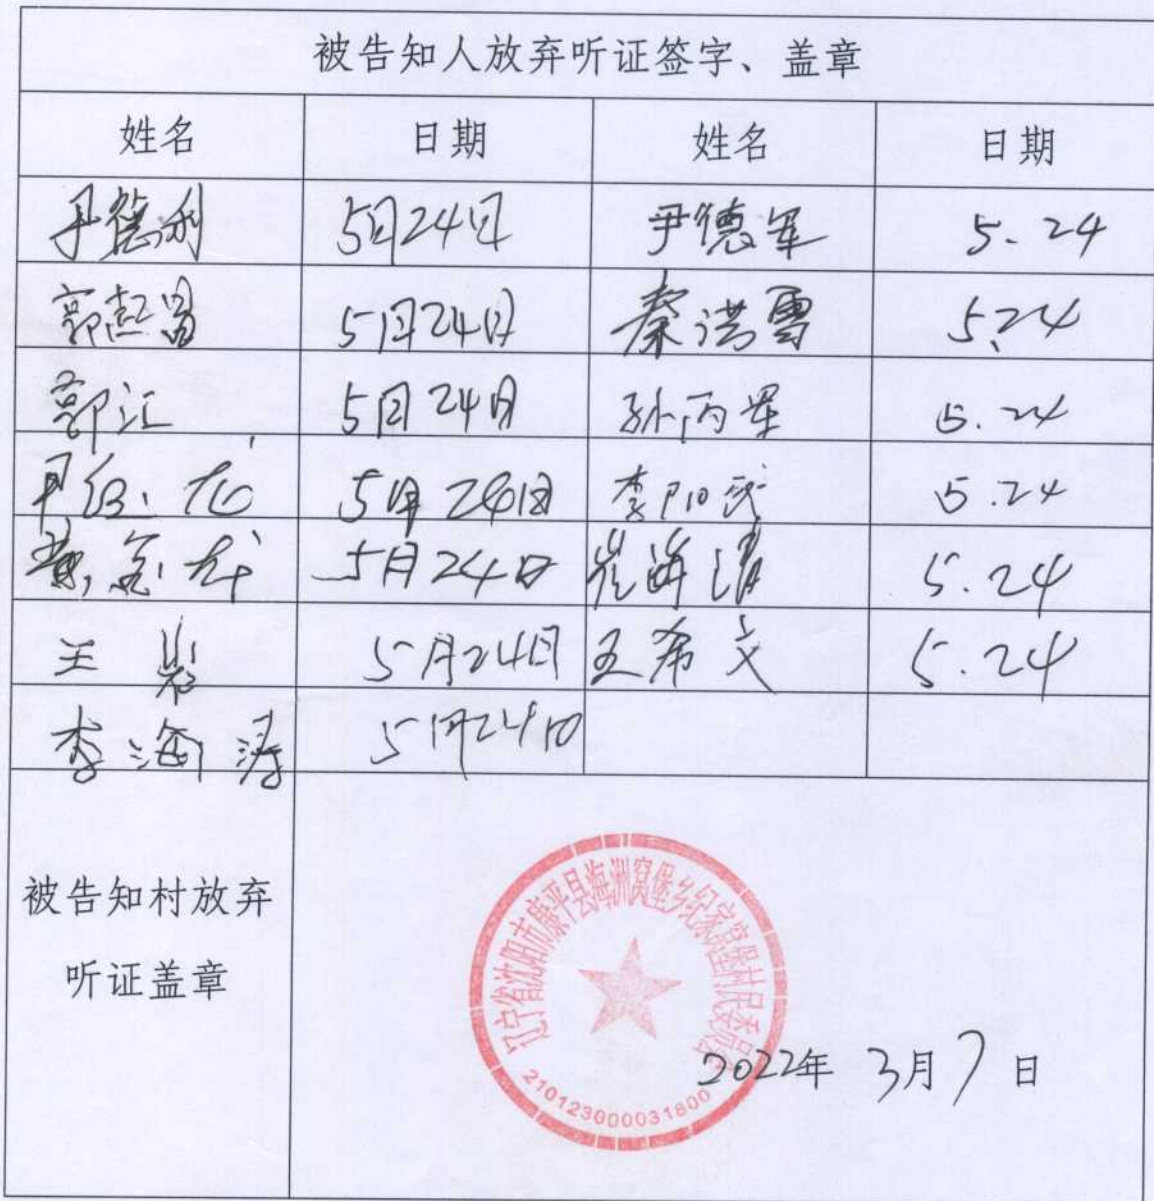 被告知人放弃听证签字、盖章
姓名 日期 姓名 日期
尹德利 5月24日 尹德军 5.24
郭起昌 5月24日 秦洪雪 5.24
郭江 5月24日 孙丙军 5.24
5月24日 李阳民 5.24
黄金龙 5月24日 崔海清 5.24
王岩 5月24日 王希文 5.24
李海涛 5月24日
被告知村放弃
听证盖章
辽宁省沈阳市康平县海洲窝堡乡纪家窝堡村民委员会
210123000031800
2022年 3月7日